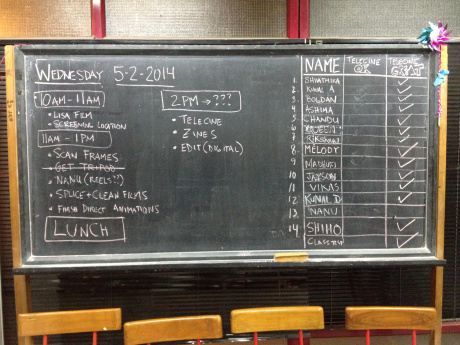 WEDNESDAY 5-2-2014
10AM - 11AM
• LISA FILM
• SCREENING LOCATION
11AM - 1PM
• SCAN FRAMES
• GET TRIPOD
• NANU (REELS??)
• SPLICE + CLEAN FILMS
• FINISH DIRECT ANIMATIONS
LUNCH
2PM → ???
• TELECINE
• ZINES
• EDIT (DIGITAL)
NAME TELECINE OK TELECINE
1. SHIVATMIKA ✓
2. KUNAL A ✓
3. BOLDAN ✓
4. ASHIMA ✓
5. CHANDU ✓
6 ✓
7. ✓
8. MELODY ✓
9 ✓
10 JAYSON ✓
11 VIKAS ✓
12 KUNAL D ✓
13. NANU
14 SHIHO ✓
CLASS TEST ✓